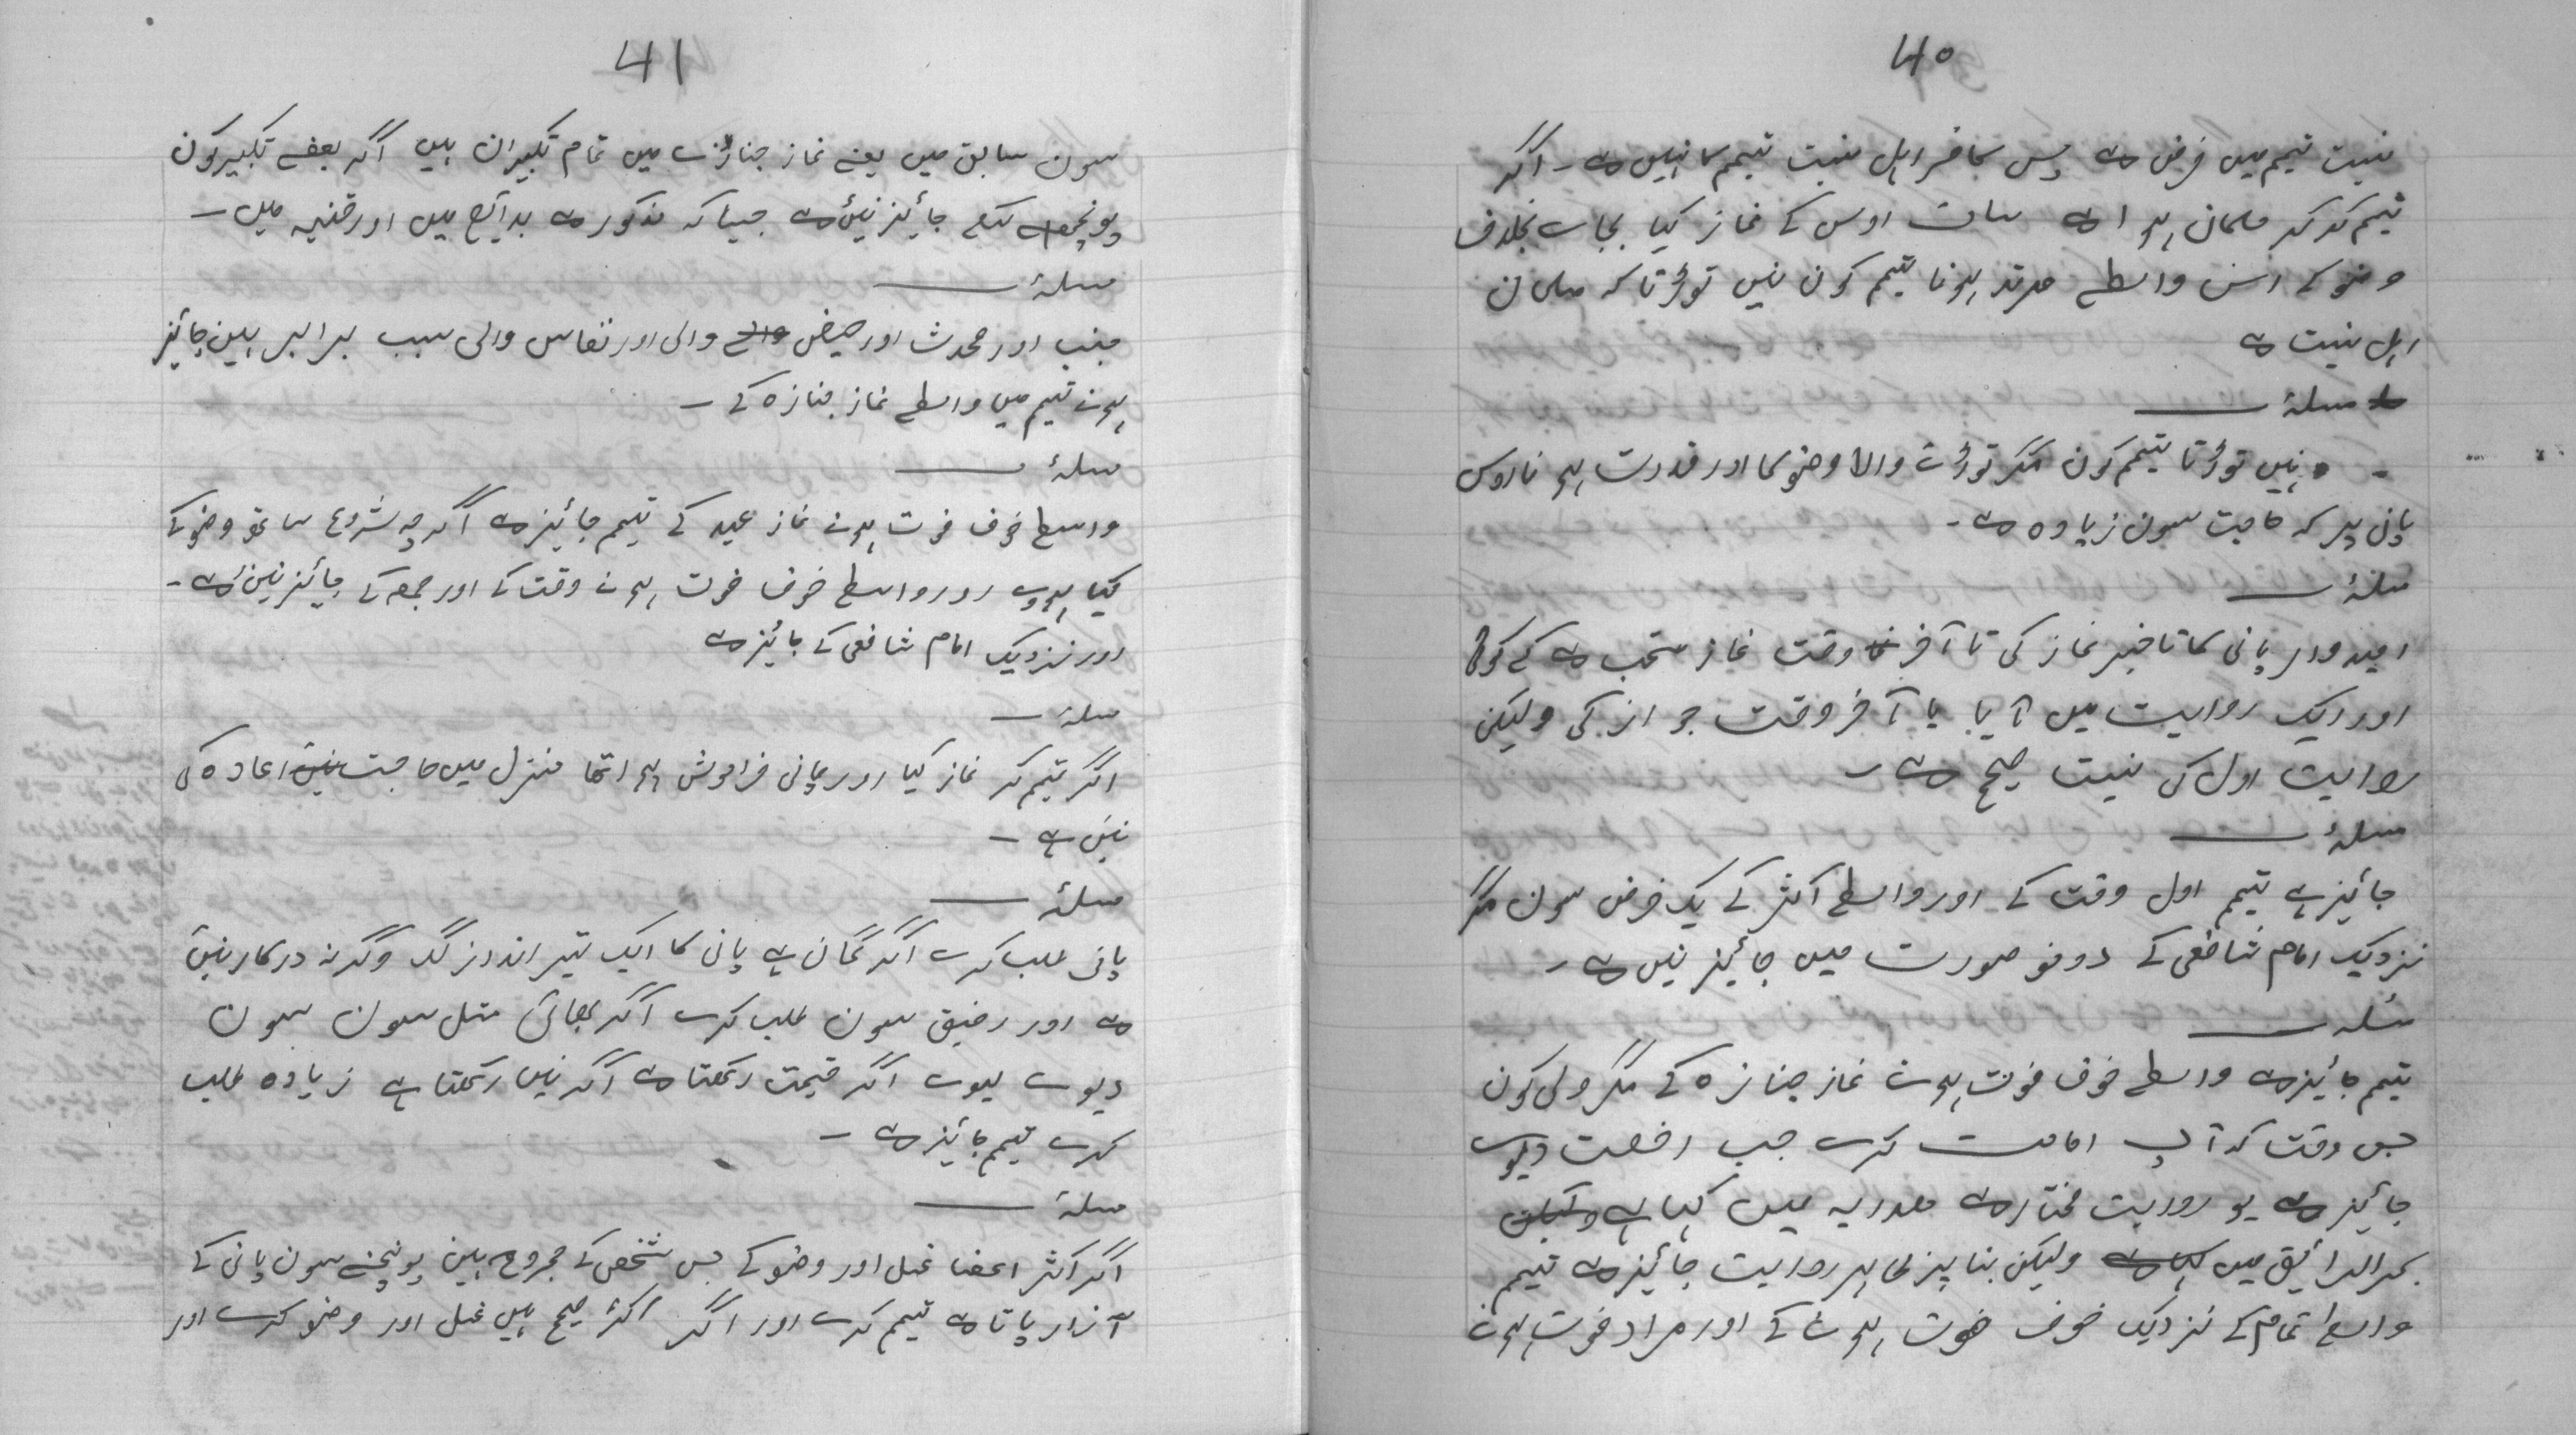 40
نیت تیمم میں فرض ہے پس کافر اہل نیت تیمم کا نہیں ہے۔ اگر
تیمم کر کر مسلمان ہوا ہے سات اوس کے نماز کیا بخلاف
وضو کے اس واسطے مرتد ہونا تیمم کون نیں توڑتا کہ مسلمان
اہل نیت ہے
مسلہٴ
نیں توڑتا تیمم کون مگر توڑنے والا وضو کا اور قدرت ہونا اوس
پانی پر کہ حاجت سون زیادہ ہے۔
مسلہٴ
امیدوار پانی کا تاخیر نماز کی تا آخر وقت نماز مستحب ہے کے کوئی
اور ایک روایت میں آیا یا آخر وقت جواز کی ولیکن
روایت اول کی نیت صحیح ہے۔
مسلہٴ
جائیز ہے تیمم اول وقت کے اور واسطے اکثر کے یک فرض سون مگر
نزدیک امام شافعی کے دونو صورت میں جائیز نیں ہے۔
مسئلہ
تیمم جائیز ہے واسطے خوف فوت ہونے نماز جنازہ کے مگر ولی کون
جس وقت کہ آپ امامت کرے جب رخصت دیوے
جائیز ہے یو روایت مختار ہے میں کہا ہے ولیکن
بحر الرائیق میں کہا ہے ولیکن بنا پر ظاہر روایت جائیز ہے تیمم
واسطے تمام کے نزدیک خوف فوت ہونے کے اور مراد فوت ہونے
41
سون سابق میں یعنے نماز جنازے میں تمام تکبیران ہیں اگر بعضے تکبیر کون
پونچھے سکے جائیز نیں ہے جیسا کہ مذکور ہے بدائع میں اور قنیہ میں۔
مسلہٴ
جنب اور محدث اور حیض والے والی اور نفاس والی سب برابر ہیں جائیز
ہونے تیمم میں واسطے نماز جنازہ کے۔
مسلہٴ
واسطے خوف فوت ہونے نماز عید کے تیمم جائیز ہے اگرچہ شروع ساتھ وضو کے
کیا ہووے اور واسطے خوف فوت ہونے وقت کے اور جمعہ کے جائیز نیں ہے۔
اور نزدیک امام شافعی کے جائیز ہے
مسلہٴ
اگر تیمم کر نماز کیا اور پانی فراموش ہوا تھا منزل میں حاجت نیں اعادہ کی
نیں ہے۔
مسلہٴ
پانی طلب کرے اگر گمان ہے پانی کا ایک تیر انداز لگ وگرنہ درکار نیں
ہے اور رفیق سون طلب کرے اگر مثل سون سون
دیوے لیوے اگر قیمت رکھتا ہے اگر نیں رکھتا ہے زیادہ طلب
کرے تیمم جائیز ہے۔
مسلہٴ
اگر اکثر اعضا غسل اور وضو کے جس شخص کے مجروح ہیں پونچنے سون پانی کے
آزار پاتا ہے تیمم کرے اور اگر اکثر صحیح ہیں غسل اور وضو کرے اور